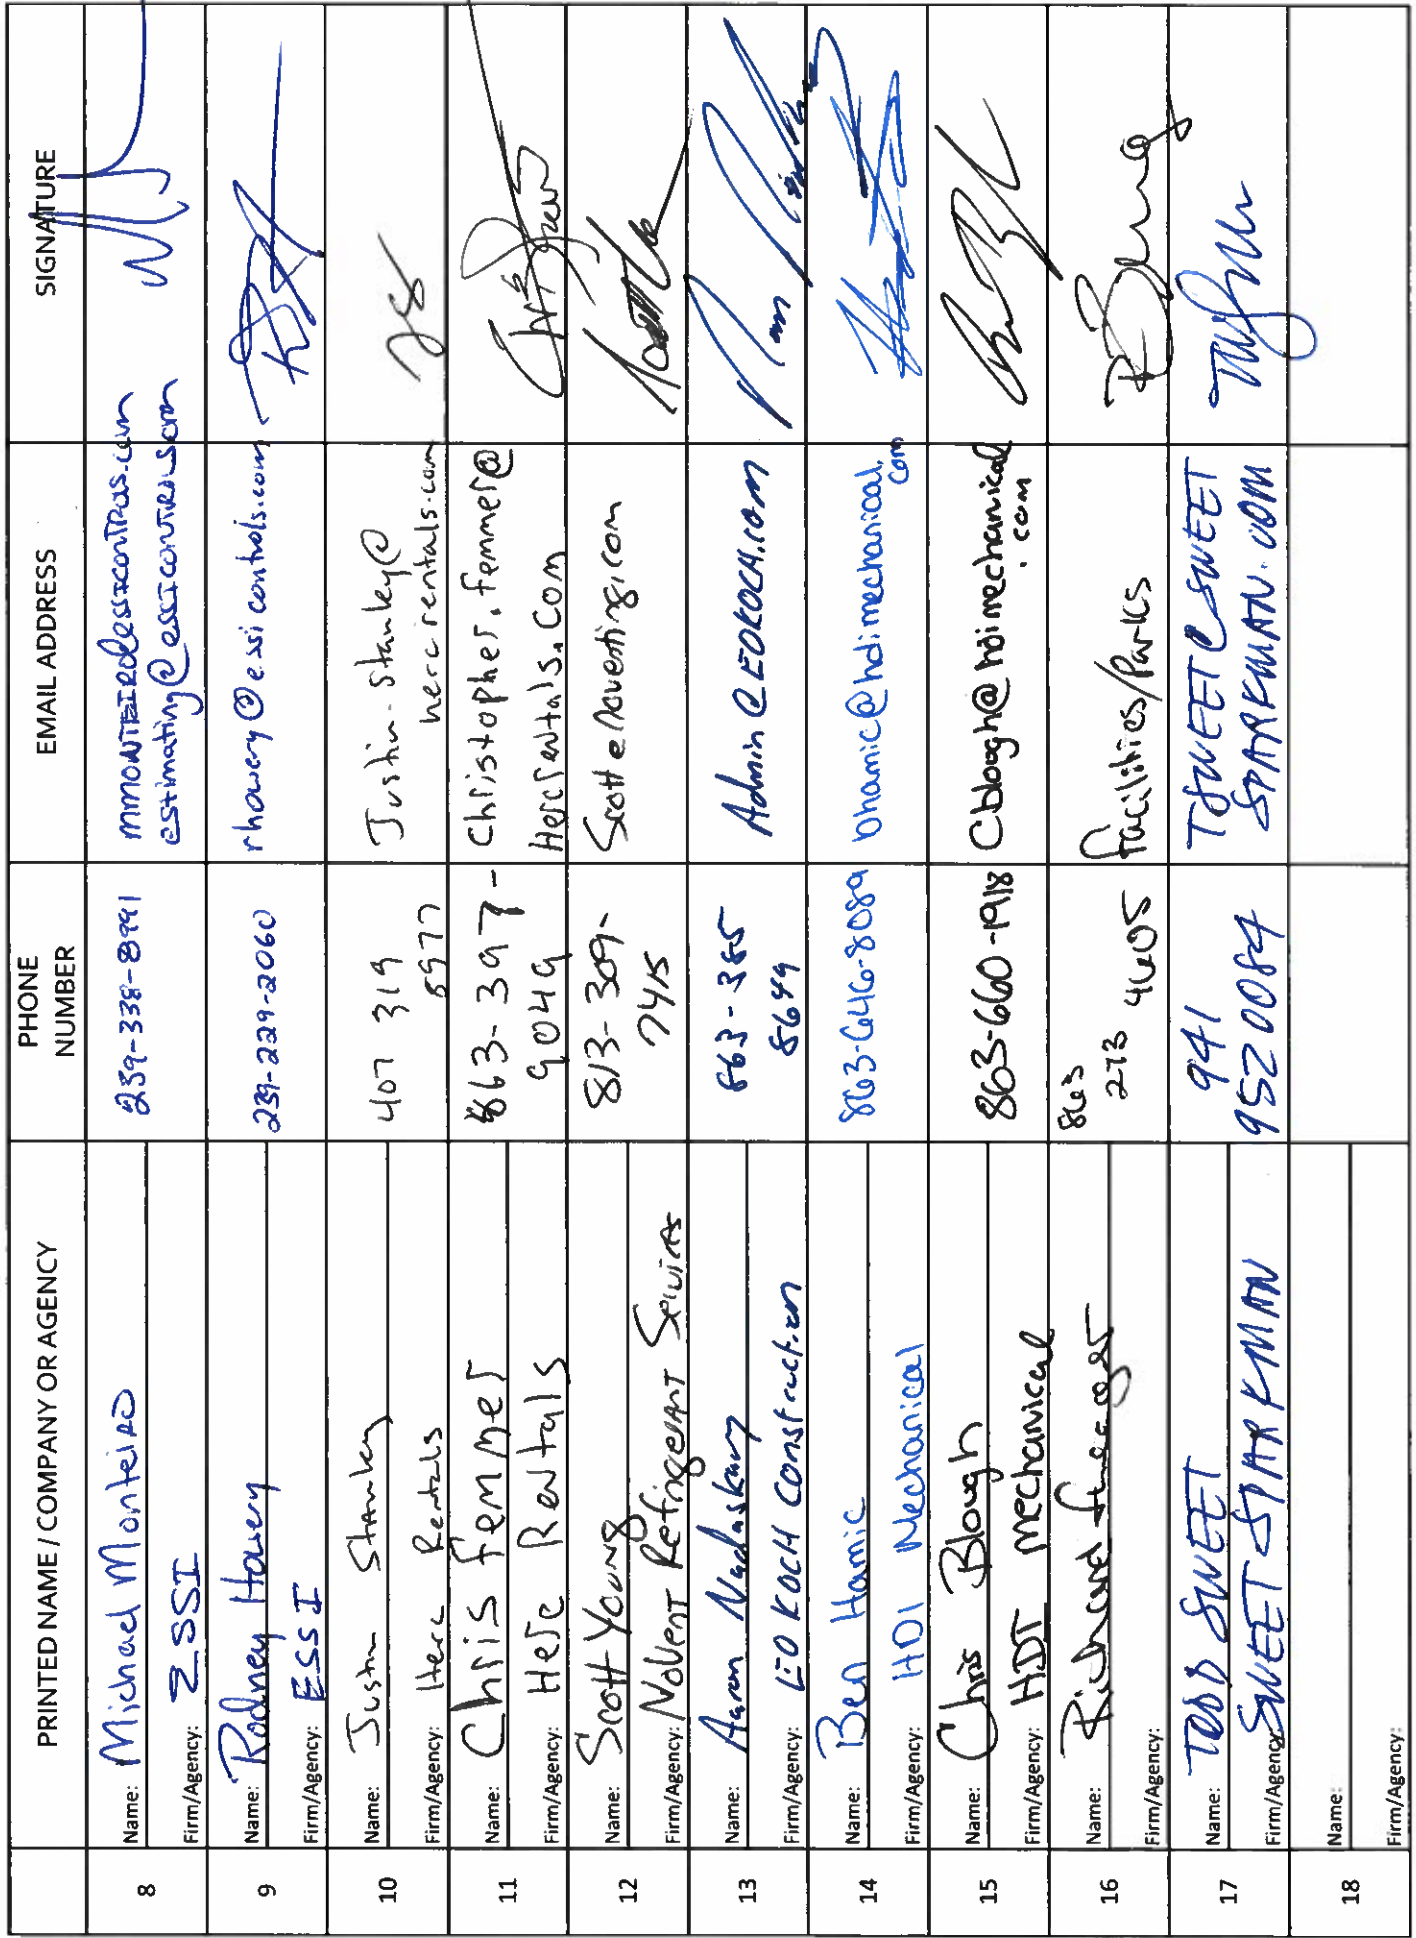 PRINTED NAME / COMPANY OR AGENCY
PHONE
NUMBER
EMAIL ADDRESS
SIGNATURE
8
Name: Michael Monteiro
Firm/Agency: ESSI
239-338-8991
estimating@essicontrols.com
9
Name: Rodney Howery
Firm/Agency: ESSI
239-229-2060
rhowery@essicontrols.com
10
Name: Justin Stanley
Firm/Agency: Herc Rentals
407 319
8977
Justin.Stanley@
hercrentals.com
11
Name: Chris Femmer
Firm/Agency: Herc Rentals
863-397-
9049
Christopher.Femmer@
Hercrentals.Com
12
Name: Scott Young
Firm/Agency: Novent Refrigerant Services
813-309-
7415
13
Name: Aaron
Firm/Agency: LEO KOCH Construction
863-385
8649
Admin@LEOKOCH.com
14
Name: Ben Hamic
Firm/Agency: HDI Mechanical
863-646-8089
bhamic@hdimechanical.
com
15
Name: Chris Blough
Firm/Agency: HDI mechanical
863-660-1918
Cblough@hdimechanical
.com
16
Name: Richard
Firm/Agency:
863
273 4605
Facilities/Parks
17
Name: TODD SWEET
Firm/Agency: SWEET SPARKMAN
941
952 0084
TSWEET@SWEET
SPARKMAN.COM
18
Name:
Firm/Agency: